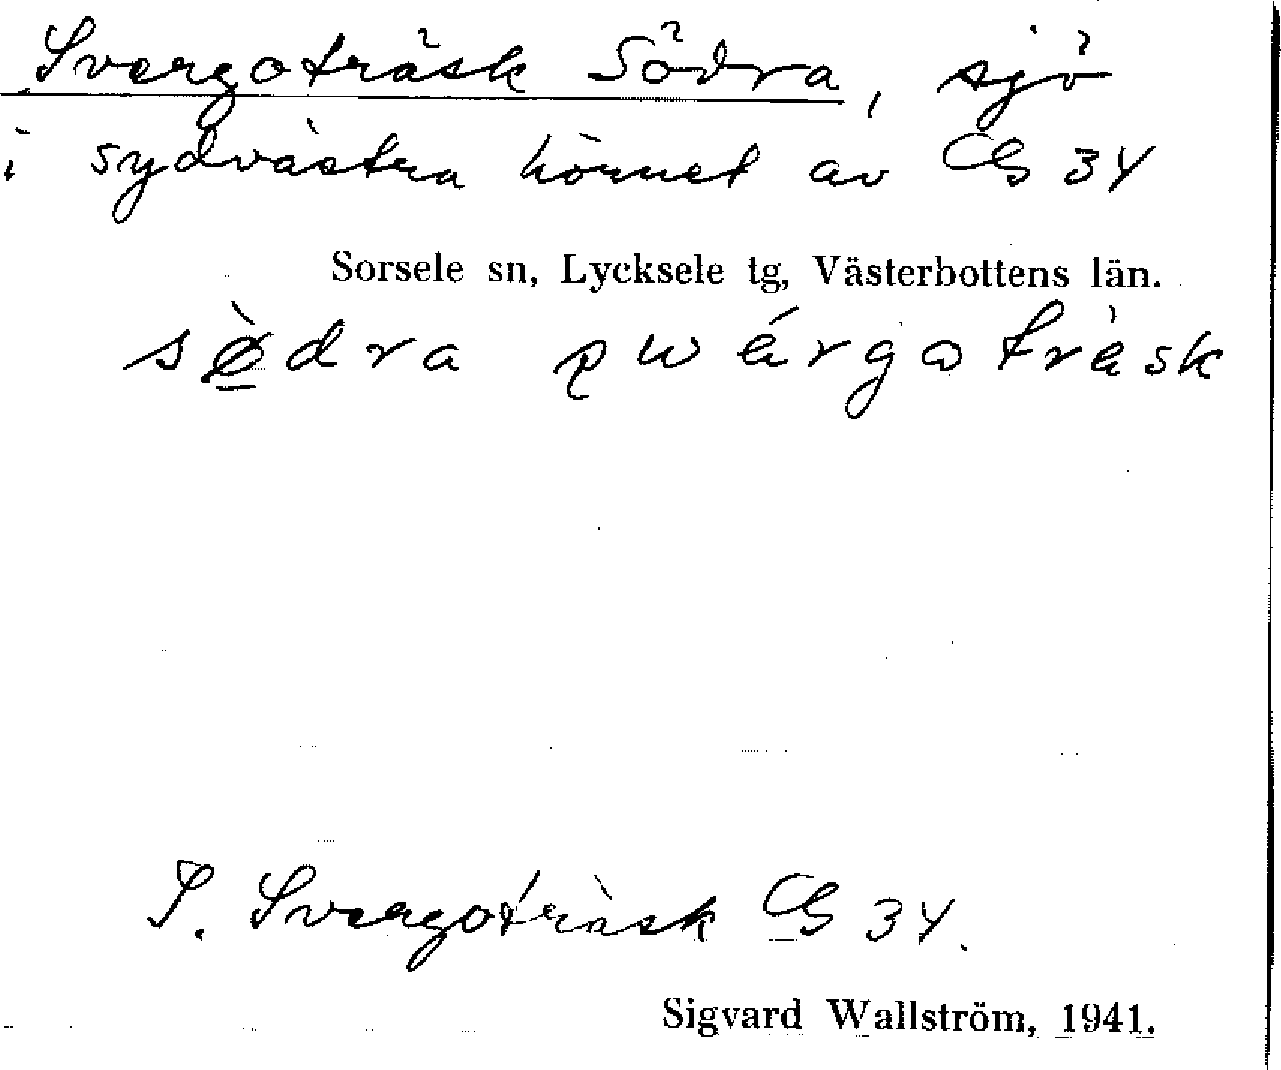 Svergoträsk Södra, sjö
i sydvästra hörnet av GS 34
Sorsele sn, Lycksele tg, Västerbottens län.
sø̀dra swérgoträsk
S. Svergoträsk GS 34.
Sigvard Wallström, 1941.